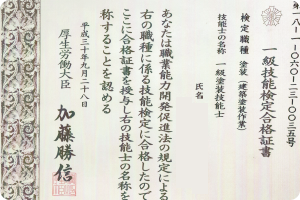 第一八-一-一〇六〇-二三-〇〇三五号
一級技能検定合格証書
検定職種 塗装(建築塗装作業)
技能士の名称 一級塗装技能士
氏名
あなたは職業能力開発促進法の規定による
右の職種に係る技能検定に合格したので
ここに合格証書を授与し右の技能士の名称を
称することを認める
平成三十年九月二十八日
厚生労働大臣 加藤勝信